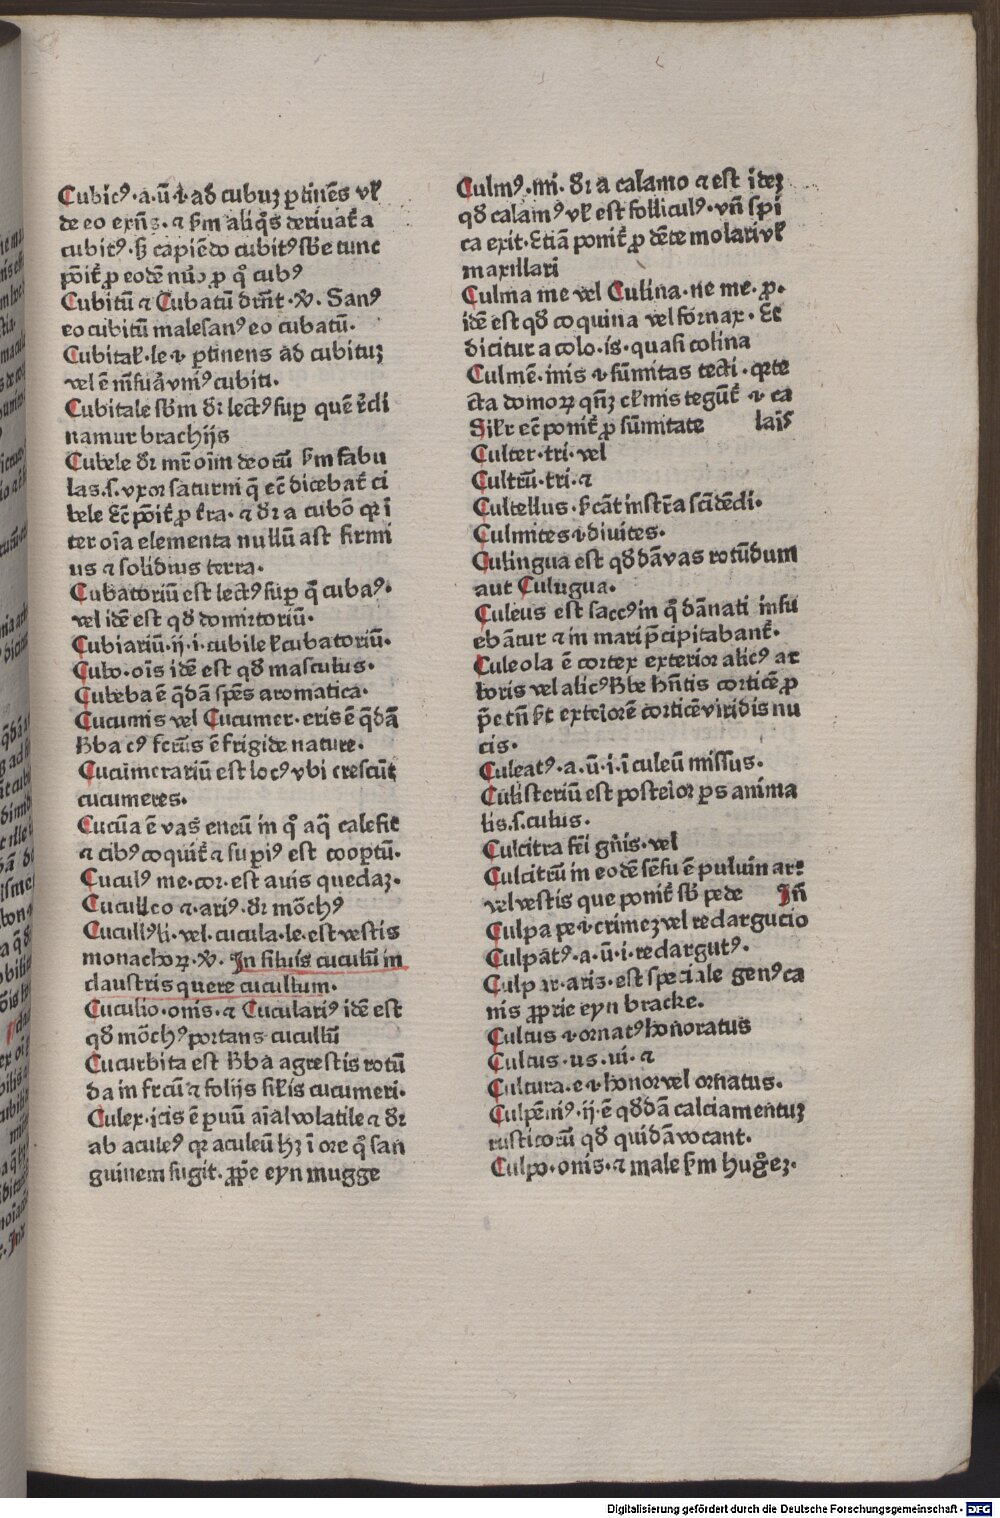 Cubicꝰ·a·ū·i·ad cubuꝫ ꝑtinēs vł
de eo exn̄s·⁊ ẜm aliq̄s deriuat̄ a
cubitꝰ·ẜꝫ capiēdo cubitꝰ sb̄e tunc
pōit̄ ꝓ eodē ꝓ qͦ cubꝰ
Cubitū ⁊ Cubatū drn̄t·V̄·Sanꝰ
eo cubitū malesanꝰ eo cubatū·
Cubital̄·le·i· ꝑtinens ad cubituꝫ
vel ē vniꝰ cubiti·
Cubitale sb̄m dr̄ lectꝰ suꝑ quē r̄cli
namur brachijs
Cubele dr̄ mr̄ oīm deorū ẜm fabu
las·s·vxor saturni q̄ ec̄ dicebat̄ ci
bele Ec̄ pōit̄ ꝓ t̄ra·⁊ dr̄ a cubō qr̄ ī
ter oīa elementa nullū ast firmi
us ⁊ solidius terra·
Cubatoriū est lectꝰ suꝑ qͦ cubaꝰ·
vel idē est qd̄ domirtoriū·
Cubiariū·ij·i·cubile ł cubatoriū·
Cubo·oīs idē est qd̄ masculus·
Cubeba ē q̄dā spēs aromatica·
Cucumis vel Cucumer·eris ē q̄dā
h̄ba cꝰ frcūs ē frigide nature·
Cucūmerariū est locꝰ vbi crescūt
cucumeres·
Cucūa ē vas eneū in qͦ aq̄ calefit
⁊ cibꝰ coquit̄ ⁊ suꝑiꝰ est cooꝑtū·
Cuculꝰ me·cor·est auis quedaꝫ·
Cuculleo ⁊·ariꝰ·dr̄ mōchꝰ
Cucullꝰ·li·vel·cucula·le·est vestis
monachoꝝ·V̄·In siluis cucułū in
claustris quere cucullum·
Cuculio·onis·⁊ Cuculariꝰ idē est
qd̄ mōchꝰ portans cucullū
Cucurbita est h̄ba agrestis rotū
da in frcū ⁊ folijs sił̄is cucumeri·
Culex·icis ē ꝑuū aīal volatile ⁊ dr̄
ab aculeꝰ qr̄ aculeū hꝫ ī ore qͦ san
guinem sugit·ꝓṕe eyn mugge
Culmꝰ·mi·dr̄ a calamo ⁊ est ideꝫ
qd̄ calamꝰ vł est folliculꝰ·vn̄ spi
ca exit·Etiā ponit̄ ꝓ dēte molari vł
maxillari
Culma me vel Culina·ne me·ꝓ·
idē est qd̄ coquina vel fornax·Et
dicitur a colo·is·quasi colina
Culmē·inis·i·sūmitas tecti·qr̄te
cta domoꝝ qn̄ꝫ cl̄mis tegūt̄·i·ca
Sił̄r ec̄ ponit̄ ꝓ sūmitate lais̄
Culter·tri·vel
Cultrū·tri·⁊
Cultellus·ẜcāt instr̄a scīdēdi·
Culmites·i·diuites·
Culingua est qd̄dā vas rotūdum
aut Culugua·
Culeus est saccꝰ in qͦ dānati insu
ebātur ⁊ in mari p̄cipitabant̄·
Culeola ē cortex exterior alicꝰ ar
boris vel alicꝰ h̄be hn̄tis corticē ꝓ
p̄e tn̄ ẜt exteiorē corticē viridis nu
cis·
Culeatꝰ·a·ū·i·ī culeū missus·
Culisteriū est posteior ꝑs anima
lis·s·culus·
Culcitra fēi gn̄is·vel
Culcitrū in eodē sēsu ē puluinar·
vel vestis que ponit̄ sb̄ pede Jn̄
Culpa pe·i·crimeꝫ vel redargucio
Culpāt̄ꝰ·a·ū·i·redargutꝰ·
Culpar·aris·est speciale genꝰ ca
nis ꝓprie eyn bracke·
Cultus·i·ornatꝰ honoratus
Cultus·us·ui·⁊
Cultura·e·i·honor vel ornatus·
Culpēniꝰ·ij·ē qd̄dā calciamentuꝫ
rusticorū qd̄ quidā vocant·
Culpo·onis·⁊ male ẜm hugͦeꝫ·
Digitalisierung gefördert durch die Deutsche Forschungsgemeinschaft - DFG